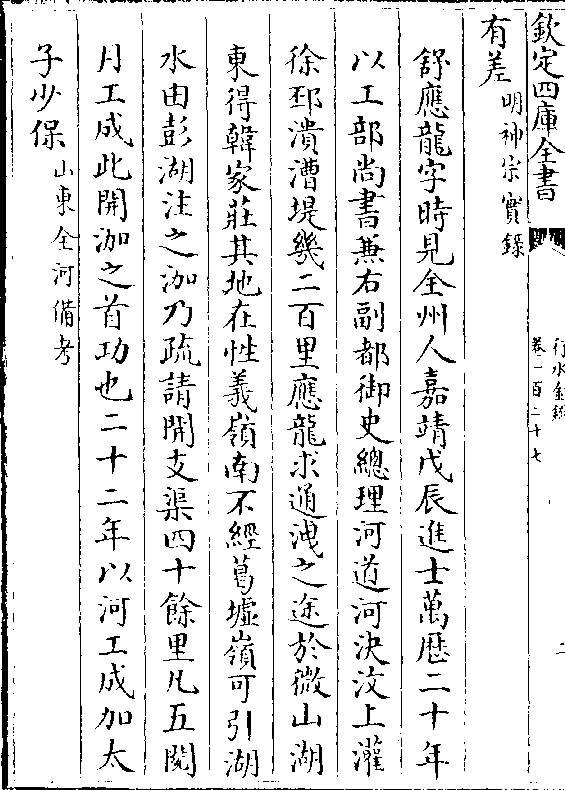 欽定四庫全書
行水金鑑
卷一百二十七
二
有差明神宗實錄
舒應龍字時見全州人嘉靖戊辰進士萬厯二十年
以工部尚書兼右副都御史總理河道河決汶上灌
徐邳潰漕堤幾二百里應龍求通洩之途於微山湖
東得韓家莊其地在性義嶺南不經葛墟嶺可引湖
水由彭湖注之泇乃疏請開支渠四十餘里凡五閱
月工成此開泇之首功也二十二年以河工成加太
子少保山東全河備考